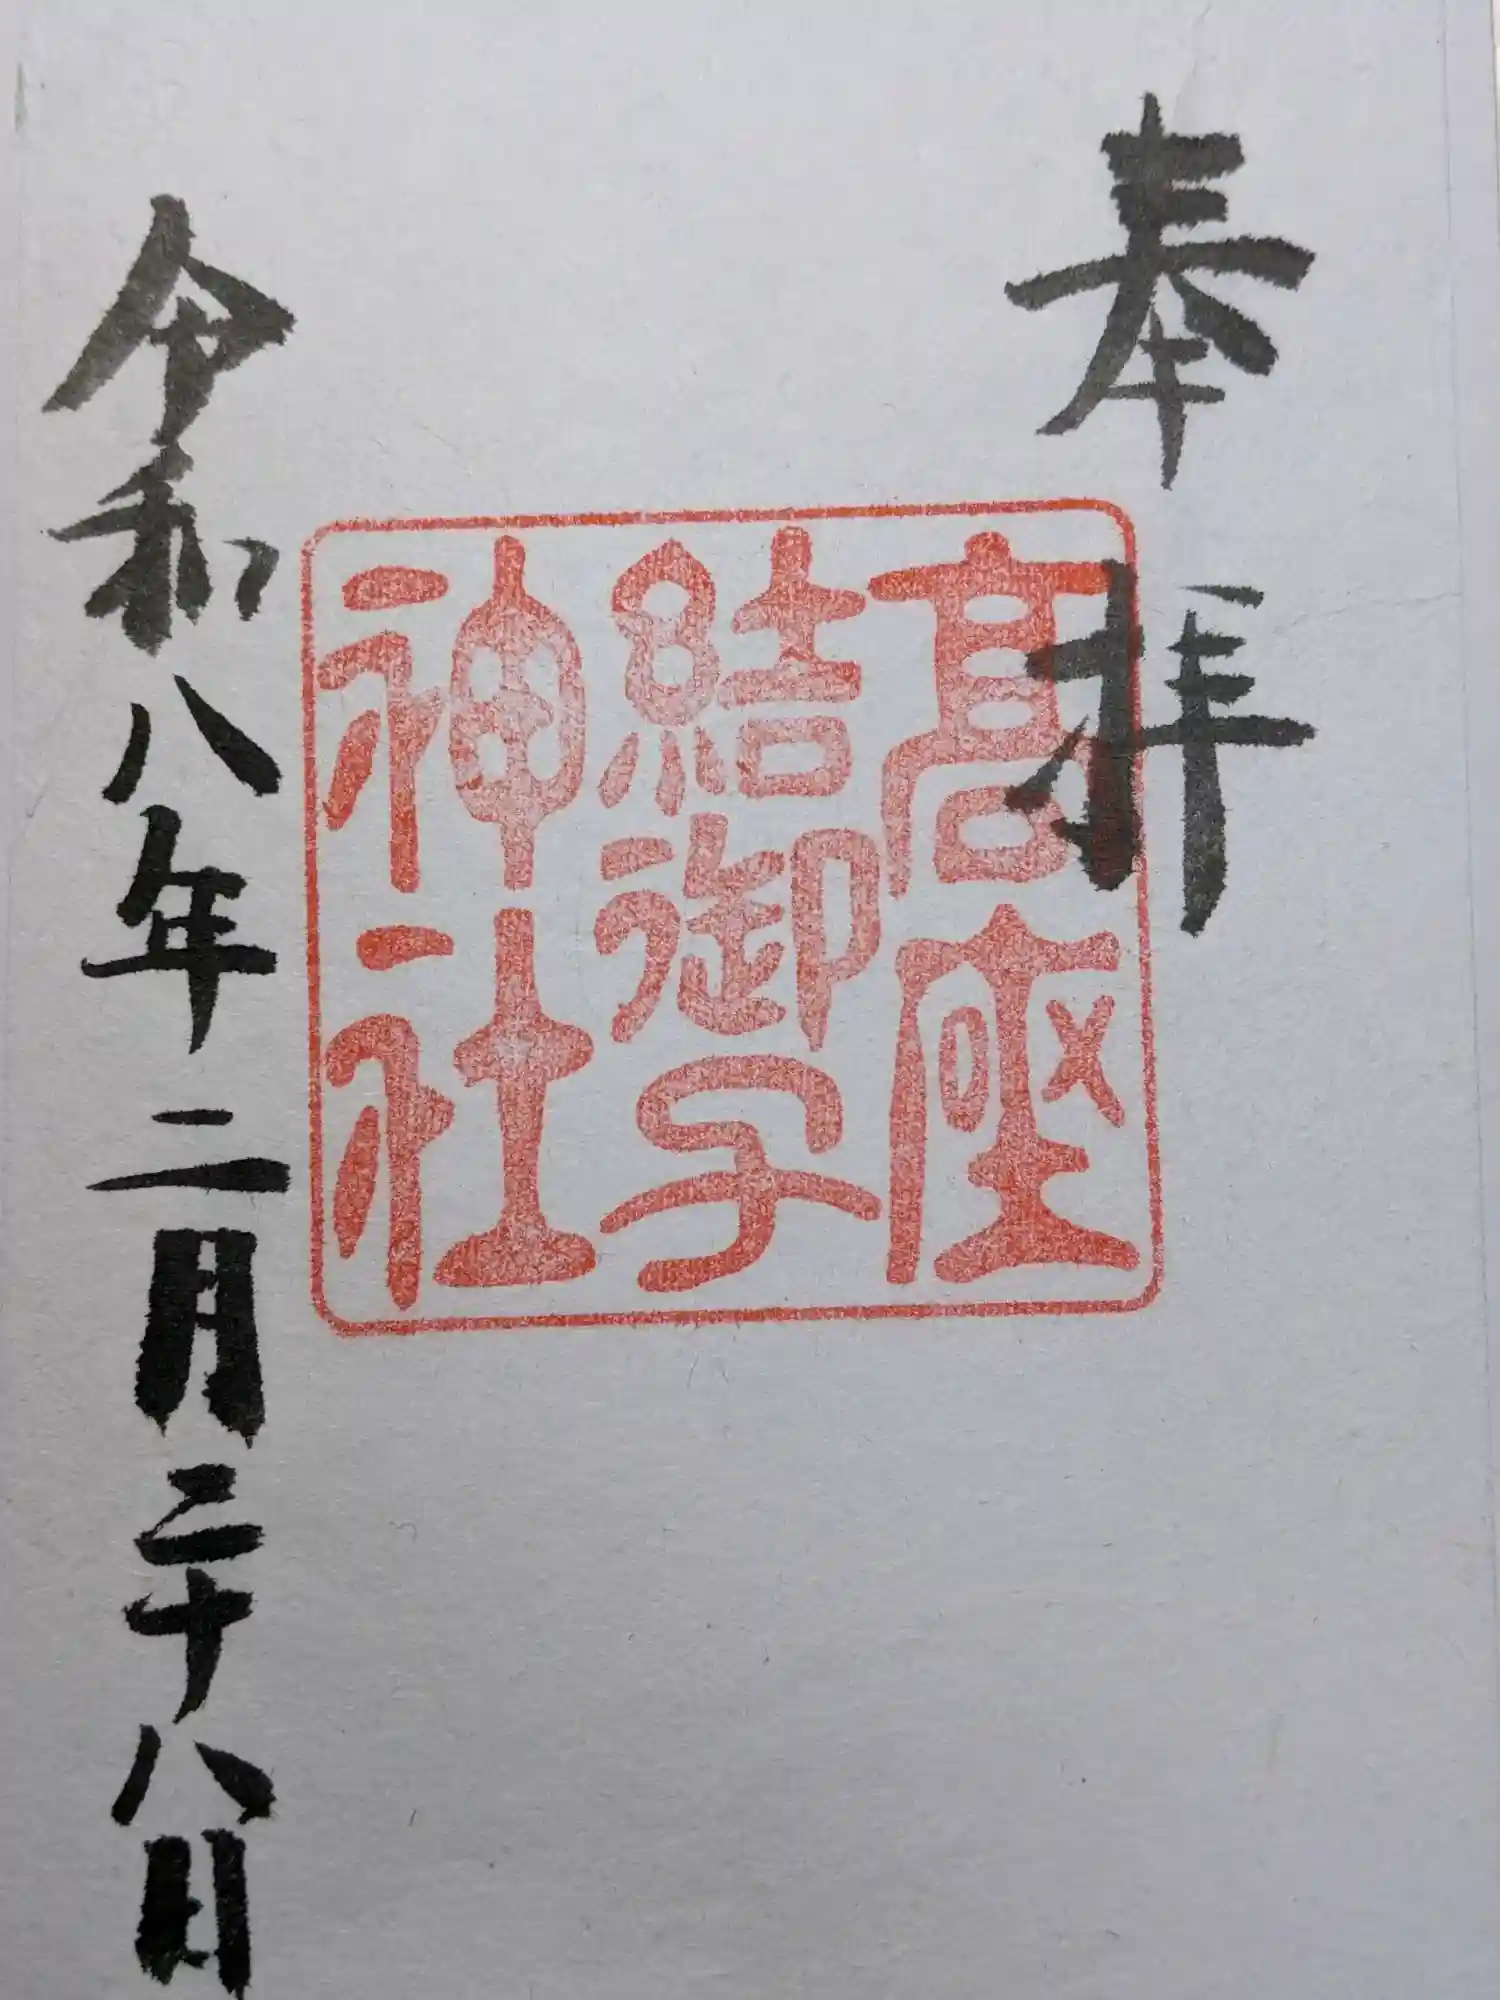 奉拝
高座
結御子
神社
令和八年二月二十八日